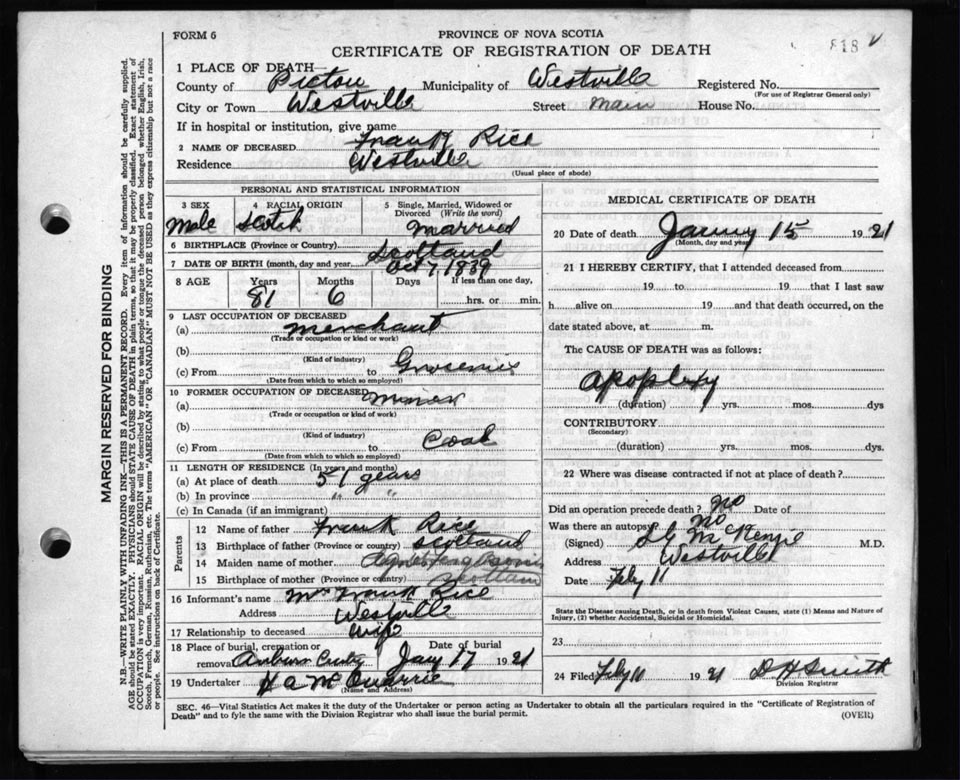 FORM 6
PROVINCE OF NOVA SCOTIA
CERTIFICATE OF REGISTRATION OF DEATH
818
1 PLACE OF DEATH—
County of Pictou Municipality of Westville Registered No.
(For use of Registrar General only)
City or Town Westville Street Main House No.
If in hospital or institution, give name
2 NAME OF DECEASED Frank Rice
Residence Westville
(Usual place of abode)
PERSONAL AND STATISTICAL INFORMATION
3 SEX 4 RACIAL ORIGIN 5 Single, Married, Widowed or Divorced (Write the word)
Male Scotch Married
6 BIRTHPLACE (Province or Country) Scotland
7 DATE OF BIRTH (month, day and year) Oct 7, 1839
8 AGE Years Months Days If less than one day,
81 6 hrs. or min.
9 LAST OCCUPATION OF DECEASED
(a) Merchant
(Trade or occupation or kind of work)
(b)
(Kind of industry)
(c) From to
(Date from which to which so employed)
10 FORMER OCCUPATION OF DECEASED
(a) Miner
(Trade or occupation or kind of work)
(b)
(Kind of industry)
(c) From to Coal
(Date from which to which so employed)
11 LENGTH OF RESIDENCE (In years and months)
(a) At place of death 51 years
(b) In province " "
(c) In Canada (if an immigrant)
Parents
12 Name of father Frank Rice
13 Birthplace of father (Province or country) Scotland
14 Maiden name of mother Agnes
15 Birthplace of mother (Province or country) Scotland
16 Informant's name Mrs Frank Rice
Address Westville
17 Relationship to deceased Wife
18 Place of burial, cremation or removal Date of burial
Jan 17 1921
19 Undertaker H A McQuarrie
(Name and Address)
MEDICAL CERTIFICATE OF DEATH
20 Date of death January 15 1921
(Month, day and year)
21 I HEREBY CERTIFY, that I attended deceased from
19 to 19 that I last saw
h alive on 19 and that death occurred, on the
date stated above, at m.
The CAUSE OF DEATH was as follows:
Apoplexy
(duration) yrs. mos. dys
CONTRIBUTORY
(Secondary)
(duration) yrs. mos. dys
22 Where was disease contracted if not at place of death?
Did an operation precede death? No Date of
Was there an autopsy No
(Signed) McKenzie M.D.
Address Westville
Date Feby 11
State the Disease causing Death, or in death from Violent Causes, state (1) Means and Nature of
Injury, (2) whether Accidental, Suicidal or Homicidal.
23
24 Filed Feby 11 1921 D H Smith
Division Registrar
SEC. 46—Vital Statistics Act makes it the duty of the Undertaker or person acting as Undertaker to obtain all the particulars required in the "Certificate of Registration of
Death" and to fyle the same with the Division Registrar who shall issue the burial permit.
(OVER)
MARGIN RESERVED FOR BINDING
N.B.—WRITE PLAINLY WITH UNFADING INK—THIS IS A PERMANENT RECORD. Every item of information should be carefully supplied.
AGE should be stated EXACTLY. PHYSICIANS should STATE CAUSE OF DEATH in plain terms, so that it may be properly classified. Exact statement of
OCCUPATION is very important. RACIAL ORIGIN will be described by stating to what people or tongue the deceased person belonged whether English, Irish,
Scotch, French, German, Russian, Ruthenian, etc. The terms "AMERICAN" OR "CANADIAN" MUST NOT BE USED as they express citizenship but not a race
or people. See instructions on back of Certificate.